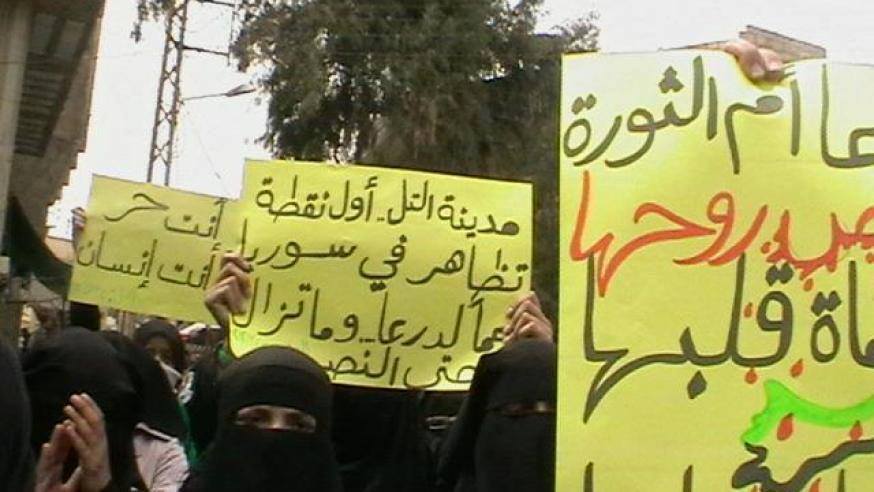 أم الثورة
روحها
قلبها
مدينة التل.. أول نقطة
تظاهر في سوريا
لدرعا.. وما تزال
حتى النصر
أنت حر
أنت إنسان